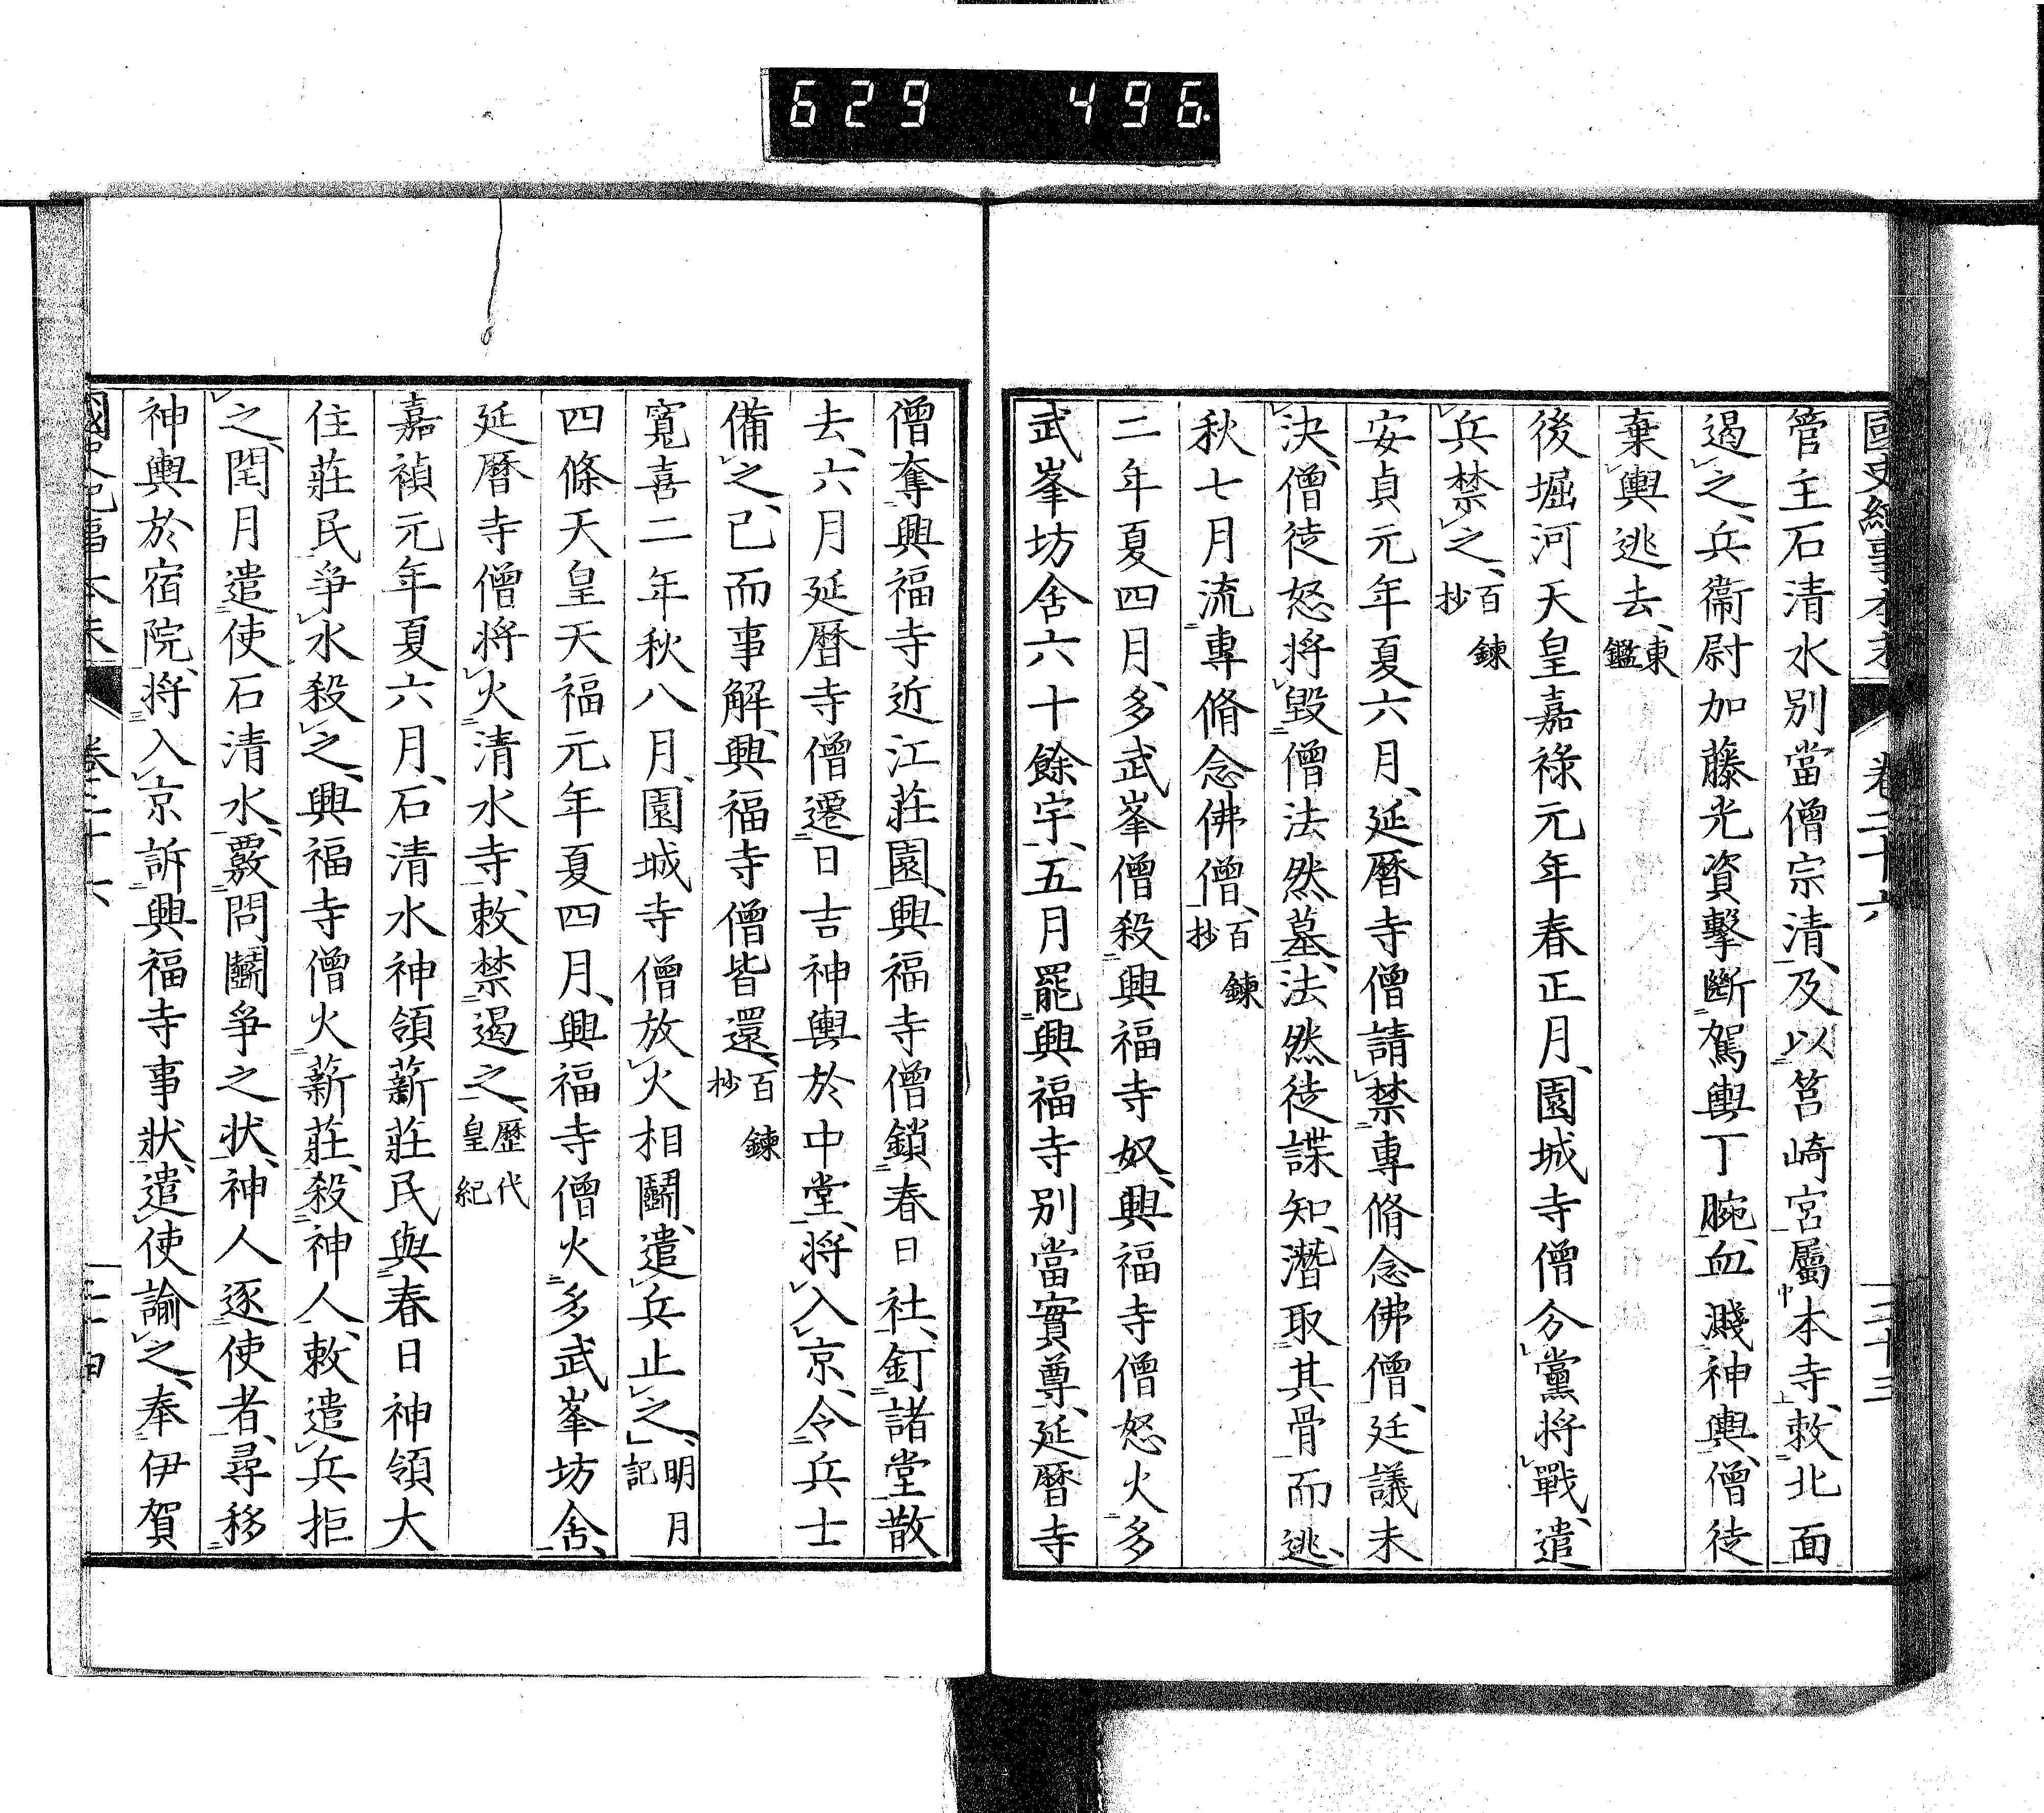 629 496.
國史紀事本末 卷二十六 二十三
管主石清水別當僧宗清、及以筥崎宮屬本寺、敕北面
遏之、兵衞尉加藤光資擊斷駕輿丁腕、血濺神輿、僧徒
棄輿逃去、東鑑
後堀河天皇嘉祿元年春正月、園城寺僧分黨將戰、遣
兵禁之、百鍊抄
安貞元年夏六月、延曆寺僧請禁專脩念佛僧、廷議未
決、僧徒怒將毀僧法然墓、法然徒諜知、潛取其骨而逃、
秋七月流專脩念佛僧、百鍊抄
二年夏四月、多武峯僧殺興福寺奴、興福寺僧怒火多
武峯坊舍六十餘宇、五月罷興福寺別當實尊、延曆寺
僧奪興福寺近江莊園、興福寺僧鎖春日社、釘諸堂散
去、六月延曆寺僧遷日吉神輿於中堂、將入京、令兵士
備之、已而事解、興福寺僧皆還、百鍊抄
寬喜二年秋八月、園城寺僧放火相鬭、遣兵止之、明月記
四條天皇天福元年夏四月、興福寺僧火多武峯坊舍、
延曆寺僧將火清水寺、敕禁遏之、歷代皇紀
嘉禎元年夏六月、石清水神領薪莊民與春日神領大
住莊民爭水殺之、興福寺僧火薪莊、殺神人、敕遣兵拒
之、閏月遣使石清水、覈問鬭爭之狀、神人逐使者、尋移
神輿於宿院、將入京訴興福寺事狀、遣使諭之、奉伊賀
國史紀事本末 卷二十六 二十四